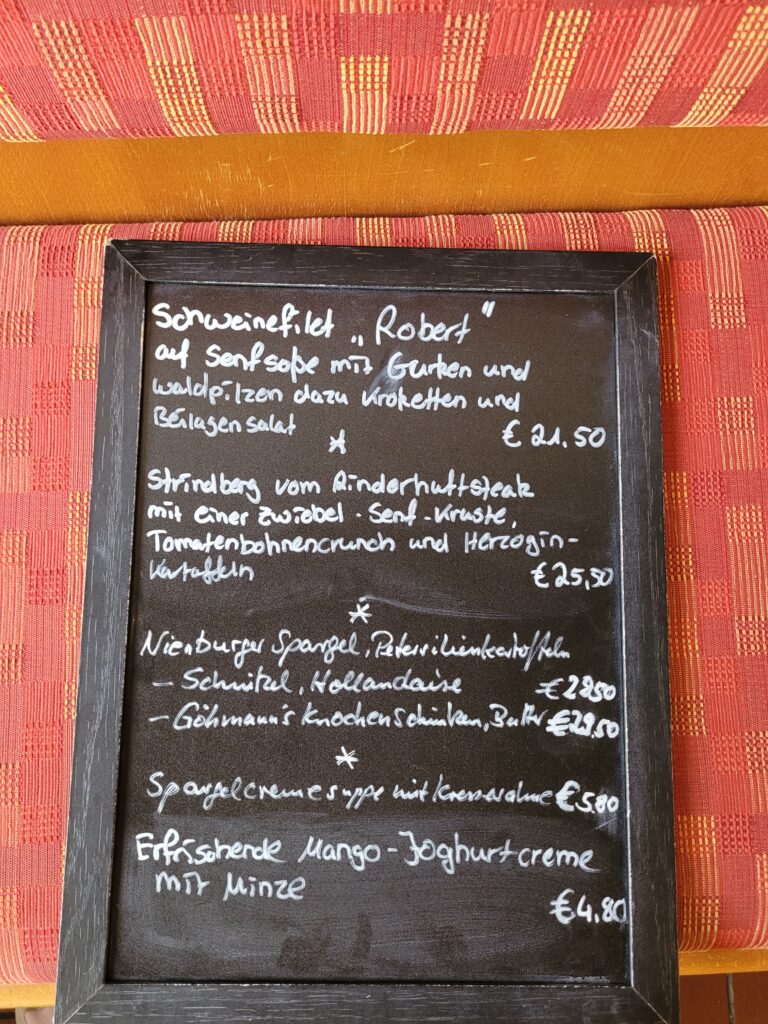 Schweinefilet „Robert"
auf Senfsoße mit Gurken und
Waldpilzen dazu Kroketten und
Beilagensalat
€ 21.50
*
Strindberg vom Rinderhuftsteak
mit einer Zwiebel-Senf-Kruste,
Tomatenbohnencrunch und Herzogin-
Kartoffeln €25,50
*
Nienburger Spargel, Petersilienkartoffeln
- Schnitzel, Hollandaise €28.50
- Göhmann's Knochenschinken, Butter €29.50
*
Spargelcremesuppe mit Kressesahne €5,80
Erfrischende Mango-Joghurtcreme
mit Minze
€4.80